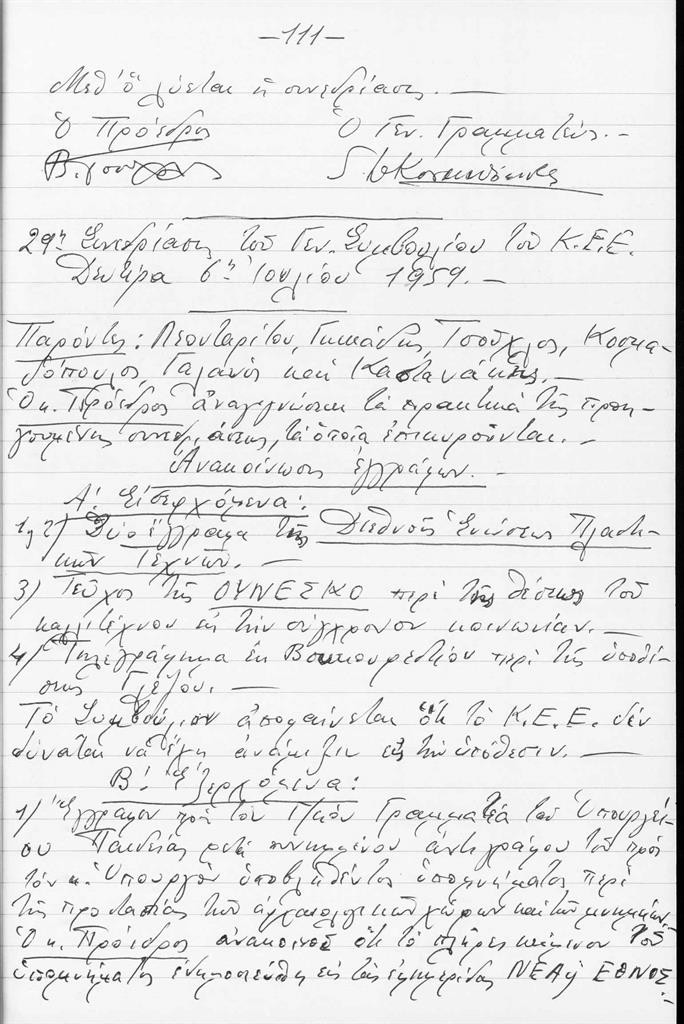 -111-
Μεθ' ὃ λύεται ἡ συνεδρίασις. —
Ὁ Πρόεδρος Ὁ Γεν. Γραμματεύς. -
29η Συνεδρίασις τοῦ Γεν. Συμβουλίου τοῦ Κ.Ε.Ε.
Δευτέρα 6η Ἰουλίου 1959. -
Παρόντες: Λεονταρίτου, Τσοῦχλος, Κοσμα-
δόπουλος, Γαλανὸς καὶ Καστανάκης. —
Ὁ κ. Πρόεδρος ἀναγιγνώσκει τὰ πρακτικὰ τῆς προη-
γουμένης συνεδριάσεως, τὰ ὁποῖα ἐπικυροῦνται. -
Ἀνακοίνωσις ἐγγράφων. -
Α! Εἰσερχόμενα:
1, 2) Δύο ἔγγραφα τῆς Διεθνοῦς Ἑνώσεως Πλαστι-
κῶν Τεχνῶν. —
3) Τεῦχος τῆς ΟΥΝΕΣΚΟ περὶ τῆς θέσεως τοῦ
καλλιτέχνου εἰς τὴν σύγχρονον κοινωνίαν. —
4) Τηλεγράφημα ἐκ Βουκουρεστίου περὶ τῆς ὑποθέ-
σεως Γλέζου. —
Τὸ Συμβούλιον ἀποφαίνεται ὅτι τὸ Κ.Ε.Ε. δὲν
δύναται νὰ ἔχῃ ἀνάμιξιν εἰς τὴν ὑπόθεσιν. —
Β! Ἐξερχόμενα:
1) Ἔγγραφον πρὸς τὸν Γ/κὸν Γραμματέα τοῦ Ὑπουργεί-
ου Παιδείας μετὰ συνημμένου ἀντιγράφου τοῦ πρὸς
τὸν κ. Ὑπουργὸν ὑποβληθέντος ὑπομνήματος περὶ
τῆς προστασίας τῶν ἀρχαιολογικῶν χώρων καὶ τῶν μνημείων.
Ὁ κ. Πρόεδρος ἀνακοινοῖ ὅτι τὸ πλῆρες κείμενον τοῦ
ὑπομνήματος ἐδημοσιεύθη εἰς τὰς ἐφημερίδας ΝΕΑ ἢ ΕΘΝΟΣ. -